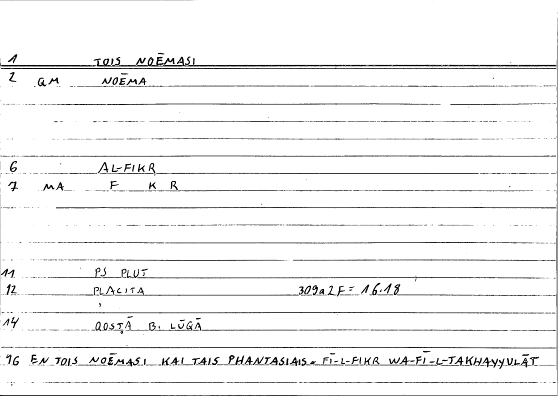 1 TOIS NOĒMASI
2 QM NOĒMA
6 AL-FIKR
7 MA F K R
11 PS PLUT
12 PLACITA 309a2F = 16.18
14 QOSṬĀ B. LŪQĀ
96 EN TOIS NOĒMASI KAI TAIS PHANTASIAIS = FĪ-L-FIKR WA-FĪ-L-TAKHAYYULĀT